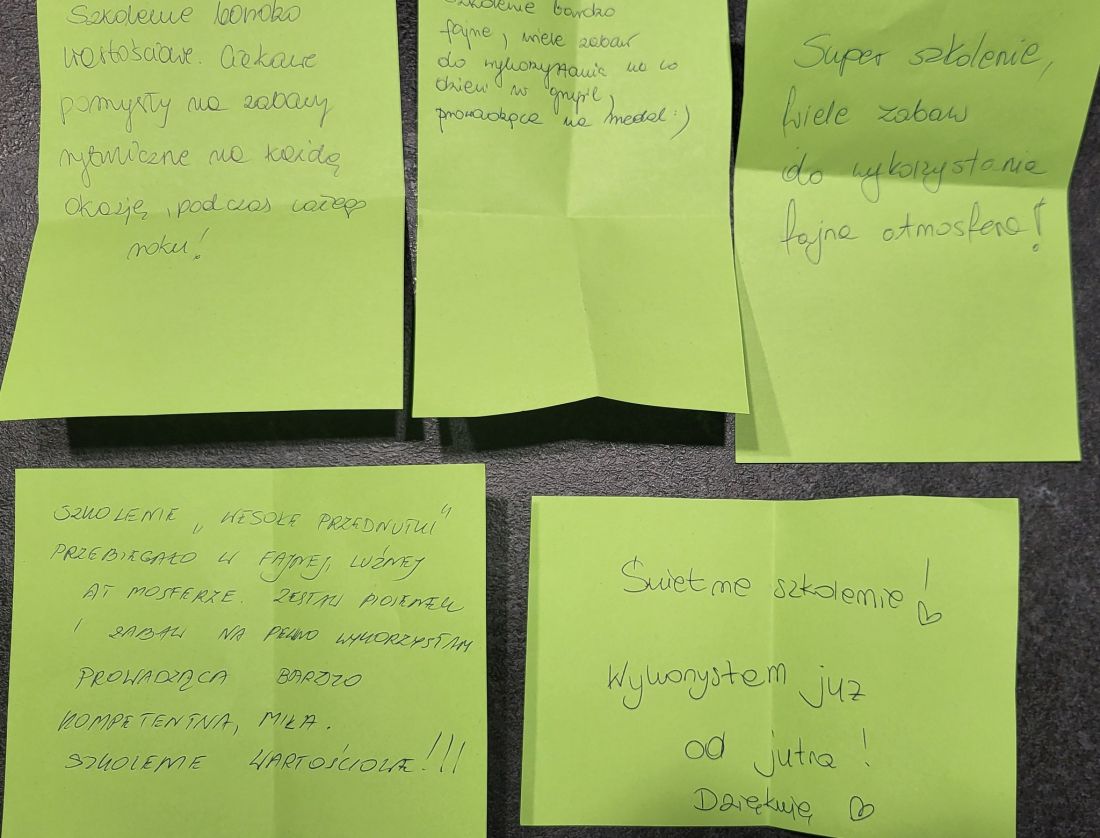 Szkolenie bardzo
wartościowe. Ciekawe
pomysły na zabawy
rytmiczne na każdą
okazję, podczas całego
roku!
Szkolenie bardzo
fajne, wiele zabaw
do wykorzystania na co
dzień w grupie,
prowadząca na medal :)
Super szkolenie,
Wiele zabaw
do wykorzystania
fajna atmosfera!
SZKOLENIE „WESOŁE PRZEDNUTKI"
PRZEBIEGAŁO W FAJNEJ, LUŹNEJ
ATMOSFERZE. ZESTAW PIOSENEK
I ZABAW NA PEWNO WYKORZYSTAM
PROWADZĄCA BARDZO
KOMPETENTNA, MIŁA.
SZKOLENIE WARTOŚCIOWE!!!
Świetne szkolenie! ♡
Wykorzystam już
od jutra!
Dziękuję ♡